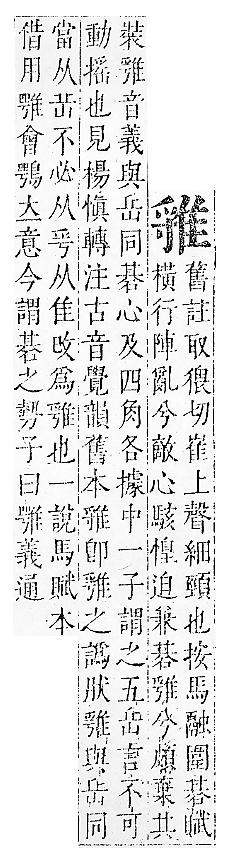 舊註取猥切崔上聲細頸也按馬融圍棊賦
橫行陣亂兮敵心駭惶迫兼棊兮頗棄其
裝音義與岳同棊心及四角各據中一子謂之五岳言不可
動搖也見楊愼轉注古音覺韻舊本卽之譌狀與岳同
當从岳不必从从隹改爲也一說馬賦本
借用會鶚大意今謂棊之勢子曰義通